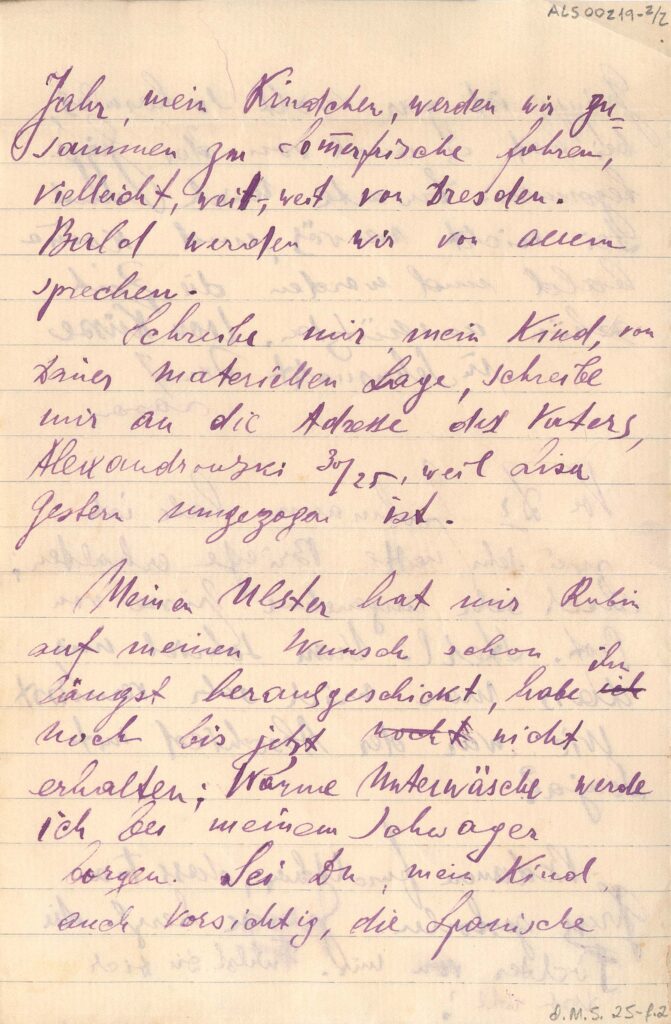 ALS 00219-2/2
Jahr, mein Kindchen, werden wir zu=
sammen zur Sommerfrische fahren,
vielleicht, weit, weit von Dresden.
Bald werden wir von allem
sprechen.
Schreibe mir, mein Kind, von
Deiner materiellen Lage, schreibe
mir an die Adresse des Vaters,
Alexandrowski 30/25, weil Lisa
gestern umgezogen ist.
Meinen Ulster hat mir Rubin
auf meinen Wunsch schon
längst herausgeschickt, habe ich ihn
noch bis jetzt nocht nicht
erhalten; Warme Unterwäsche werde
ich bei meinem Schwager
borgen. Sei Du, mein Kind,
auch vorsichtig, die Spanische
D.M.S. 25-f.2